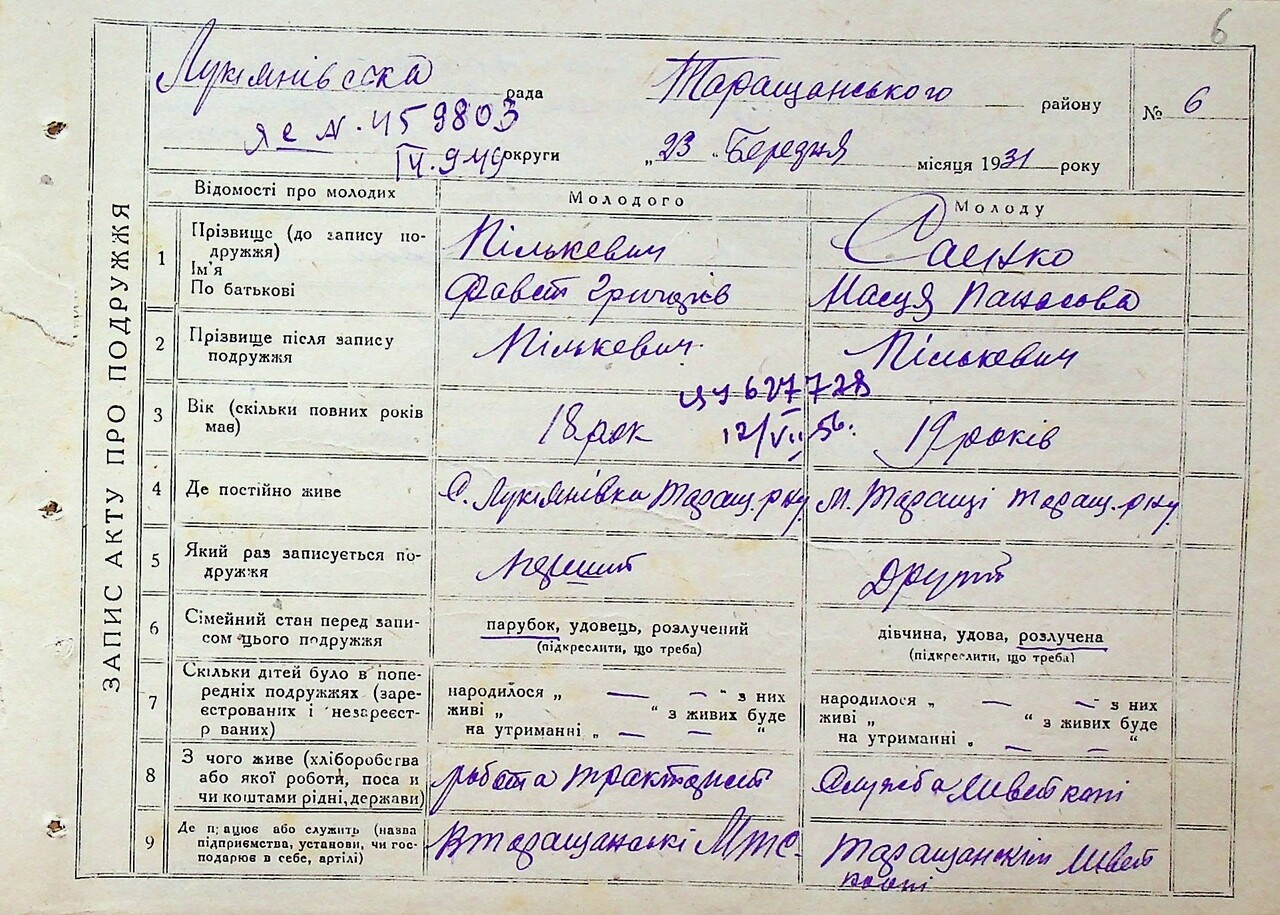 6
Лукянівсска рада Таращанського району № 6
N. 459803
IV. 949 округи „23“ Березня місяця 1931 року
ЗАПИС АКТУ ПРО ПОДРУЖЖЯ
Відомості про молодих Молодого Молоду
1 Прізвище (до запису подружжя) Пількевич Сацко
Ім'я
По батькові Фавст Грицків Насця Панасова
2 Прізвище після запису подружжя Пількевич Пількевич
627728
3 Вік (скільки повних років має) 18 рок 12/VII 56. 19 років
4 Де постійно живе С. Лукянівка Таращ. рну М. Таращі Таращ. рну
5 Який раз записується подружжя перший Другий
6 Сімейний стан перед записом цього подружжя парубок, удовець, розлучений дівчина, удова, розлучена
(підкреслити, що треба) (підкреслити, що треба)
7 Скільки дітей було в попередніх подружжях (зареєстрованих і незареєстр ваних)
народилося „ — — “ з них народилося „ — — “ з них
живі „ “ з живих буде живі „ “ з живих буде
на утриманні „ — — “ на утриманні „ — — “
8 З чого живе (хліборобства або якої роботи, поса и чи коштами рідні, держави) робота тракторист Служба
9 Де п ацює або служить (назва підприємства, установи, чи господарює в себе, артілі) В таращанські МТС. Таращанскім